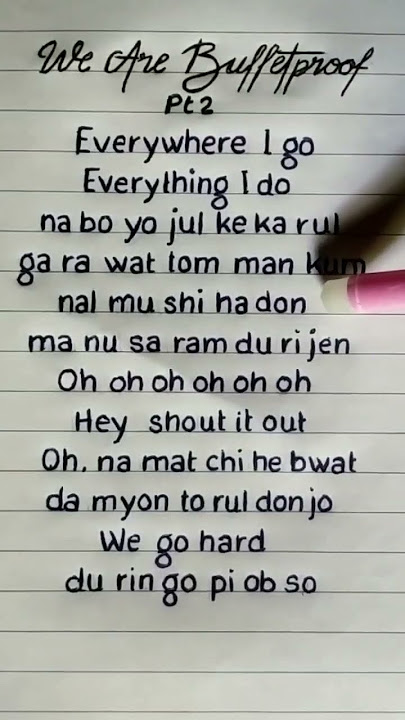 We Are Bulletproof
Pt2
Everywhere I go
Everything I do
na bo yo jul ke ka rul
ga ra wat tom man kum
nal mu shi ha don
ma nu sa ram du ri jen
Oh oh oh oh oh oh
Hey shout it out
Oh, na mat chi he bwat
da myon to rul don jo
We go hard
du rin go pi ob so